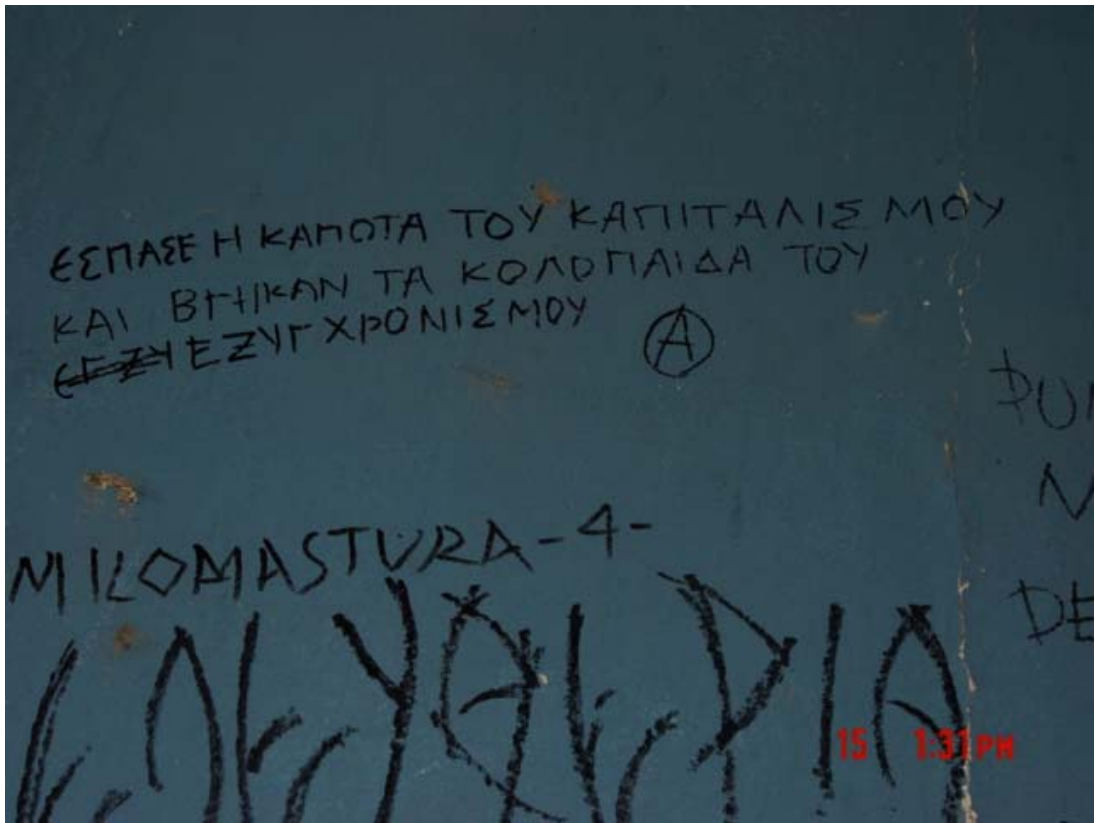 ΕΣΠΑΣΕ Η ΚΑΠΟΤΑ ΤΟΥ ΚΑΠΙΤΑΛΙΣΜΟΥ
ΚΑΙ ΒΓΗΚΑΝ ΤΑ ΚΟΛΟΠΑΙΔΑ ΤΟΥ
ΕΖΥΓΧΡΟΝΙΣΜΟΥ Α
PUN
N
DE
MILOMASTURA-4-
ΕΛΕΥΘΕΡΙΑ
15 1:31 PM